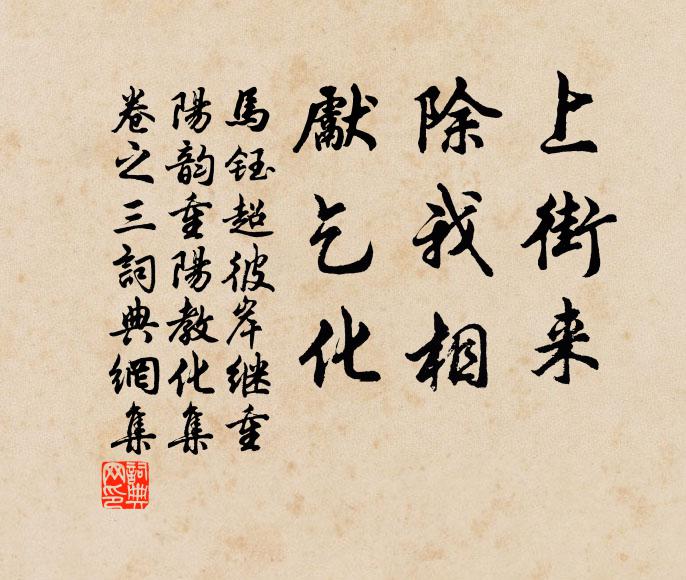 上街来
除我相
獻乞化
馬鈺超彼岸继重
陽韵重陽教化集
卷之三詞典網集
詞典网印